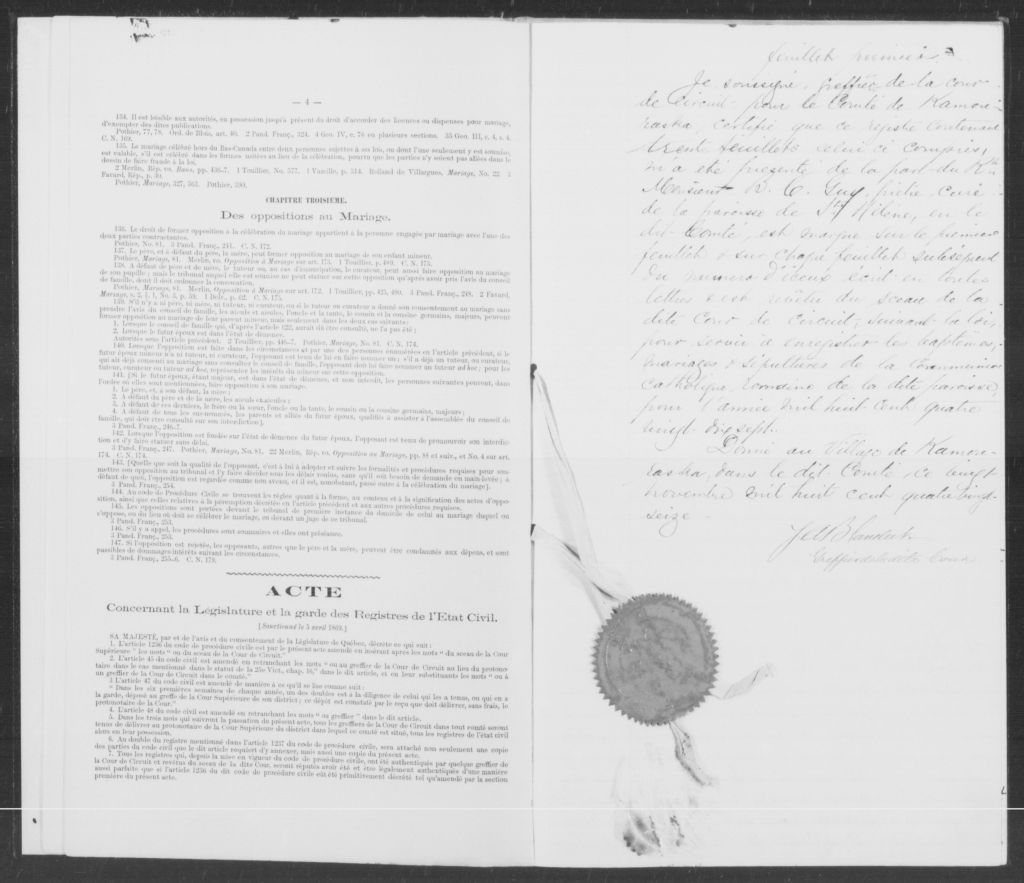 — 4 —
134. Il est loisible aux autorités, en possession jusqu'à présent du droit d'accorder des licences ou dispenses pour mariage,
d'exempter des dites publications.
Pothier, 77, 78. Ord. de Blois, art. 40. 2 Pand. Franç., 324. 4 Geo. IV, c. 76 en plusieurs sections. 35 Geo. III, c. 4, s. 4.
C. N. 169.
135. Le mariage célébré hors du Bas-Canada entre deux personnes sujettes à ses lois, ou dont l'une seulement y est soumise,
est valable, s'il est célébré dans les formes usitées au lieu de la célébration, pourvu que les parties n'y soient pas allées dans le
dessein de faire fraude à la loi.
2 Merlin, Rép. vo. Bans, pp. 436-7. 1 Toullier, No. 577. 1 Vazille, p. 314. Rolland de Villargues, Mariage, No. 22. 3
Favard, Rép., p. 59.
Pothier, Mariage, 327, 363. Pothier, 390.
CHAPITRE TROISIEME.
Des oppositions au Mariage.
136. Le droit de former opposition à la célébration du mariage appartient à la personne engagée par mariage avec l'une des
deux parties contractantes.
Pothier, No. 81. 3 Pand. Franç., 251. C. N. 172.
137. Le père, et à défaut du père, la mère, peut former opposition au mariage de son enfant mineur.
Pothier, Mariage, 81. Merlin, vo. Opposition à Mariage sur art. 173. 1 Toullier, p. 489. C. N. 173.
138. A défaut de père et de mère, le tuteur ou, au cas d'émancipation, le curateur, peut aussi faire opposition au mariage
de son pupille; mais le tribunal auquel elle est soumise ne peut statuer sur cette opposition qu'après avoir pris l'avis du conseil
de famille, dont il doit ordonner la convocation.
Pothier, Mariage, 81. Merlin, Opposition à Mariage sur art. 172. 1 Toullier, pp. 425, 490. 3 Pand. Franç., 248. 2 Favard,
Mariage, s. 2, § 1, No. 3, p. 59. C. N. 175.
139. S'il n'y a ni père, ni mère, ni tuteur, ni curateur, ou si le tuteur ou curateur a donné son consentement au mariage sans
prendre l'avis du conseil de famille, les aïeuls et aïeules, l'oncle et la tante, le cousin et la cousine germains, majeurs, peuvent
former opposition au mariage de leur parent mineur, mais seulement dans les deux cas suivants:
1. Lorsque le conseil de famille qui, d'après l'article 122, aurait dû être consulté, ne l'a pas été;
2. Lorsque le futur époux est dans l'état de démence.
Autorités sous l'article précédent. 2 Toullier, pp. 446-7. Pothier, Mariage, No. 81. C. N. 174.
140. Lorsque l'opposition est faite dans les circonstances et par une des personnes énumérées en l'article précédent, si le
futur époux mineur n'a ni tuteur, ni curateur, l'opposant est tenu de lui en faire nommer un; s'il a déjà un tuteur, ou curateur,
qui ait déjà consenti au mariage sans consulter le conseil de famille, l'opposant doit lui faire nommer un tuteur ad hoc; pour les
tuteur, curateur ou tuteur ad hoc, représenter les intérêts du mineur sur cette opposition.
141. [Si le futur époux, étant majeur, est dans l'état de démence, et non interdit, les personnes suivantes peuvent, dans
l'ordre où elles sont mentionnées, faire opposition à son mariage.
1. Le père, et, à son défaut, la mère;
2. A défaut du père et de la mère, les aïeuls et aïeules;
3. A défaut de ces derniers, le frère ou la sœur, l'oncle ou la tante, le cousin ou la cousine germains, majeurs;
4. A défaut de tous les sus-nommés, les parents et alliés du futur époux, qualifiés à assister à l'assemblée du conseil de
famille, qui doit être consulté sur son interdiction].
3 Pand. Franç., 246-7.
142. Lorsque l'opposition est fondée sur l'état de démence du futur époux, l'opposant est tenu de promouvoir son interdic-
tion et d'y faire statuer sans délai.
3 Pand. Franç., 247. Pothier, Mariage, No. 81. 22 Merlin, Rép. vo. Opposition au Mariage, pp. 88 et suiv., et No. 4 sur art.
174. C. N. 174.
143. [Quelle que soit la qualité de l'opposant, c'est à lui à adopter et suivre les formalités et procédures requises pour sou-
mettre son opposition au tribunal et l'y faire décider sous les délais voulus, sans qu'il soit besoin de demande en main-levée; à
défaut de quoi, l'opposition est regardée comme non avenue, et il est, nonobstant, passé outre à la célébration du mariage].
3 Pand. Franç., 254.
144. Au code de Procédure Civile se trouvent les règles quant à la forme, au contenu et à la signification des actes d'oppo-
sition, ainsi que celles relatives à la péremption décrétée en l'article précédent et aux autres procédures requises.
145. Les oppositions sont portées devant le tribunal de première instance du domicile de celui au mariage duquel on
s'oppose, ou du lieu où doit se célébrer le mariage, ou devant un juge de ce tribunal.
3 Pand. Franç., 253.
146. S'il y a appel, les procédures sont sommaires et elles ont préséance.
3 Pand. Franç., 253.
147. Si l'opposition est rejetée, les opposants, autres que le père et la mère, peuvent être condamnés aux dépens, et sont
passibles de dommages-intérêts suivant les circonstances.
3 Pand. Franç., 255-6. C. N. 179.
ACTE
Concernant la Législature et la garde des Registres de l'Etat Civil.
[Sanctionné le 5 avril 1869.]
SA MAJESTÉ, par et de l'avis et du consentement de la Législature de Québec, décrète ce qui suit:
1. L'article 1236 du code de procédure civile est par le présent acte amendé en insérant après les mots "du sceau de la Cour
Supérieure" les mots "ou du sceau de la Cour de Circuit."
2. L'article 45 du code civil est amendé en retranchant les mots "au greffier de la Cour de Circuit au lieu du protono-
taire dans le cas mentionné dans le statut de la 25e Vict., chap. 16," dans le dit article, et en leur substituants les mots "ou à
un greffier de la Cour de Circuit dans le comté."
3. L'article 47 du code civil est amendé de manière à ce qu'il se lise comme suit:
"Dans les six premières semaines de chaque année, un des doubles est à la diligence de celui qui les a tenus, ou qui en a
la garde, déposé au greffe de la Cour Supérieure de son district; ce dépôt est constaté par le reçu que doit délivrer, sans frais, le
protonotaire de la Cour."
4. L'article 48 du code civil est amendé en retranchant les mots "ou greffier" dans le dit article.
5. Dans les trois mois qui suivront la passation du présent acte, tous les greffiers de la Cour de Circuit dans tout comté seront
tenus de délivrer au protonotaire de la Cour Supérieure du district dans lequel ce comté est situé, tous les registres de l'état civil
alors en leur possession.
6. Au double du registre mentionné dans l'article 1237 du code de procédure civile, sera attaché non seulement une copie
des parties du code civil que le dit article requiert d'y annexer, mais aussi une copie du présent acte.
7. Tous les registres qui, depuis la mise en vigueur du code de procédure civile, ont été authentiqués par quelque greffier de
la Cour de Circuit et revêtus du sceau de la dite Cour, seront réputés avoir été et être légalement authentiqués d'une manière
aussi parfaite que si l'article 1236 du dit code de procédure civile eût été primitivement décrété tel qu'amendé par la section
première du présent acte.
feuillet premier
Je soussigné, greffier de la cour
de circuit pour le Comté de Kamou-
raska, certifie que ce registre contenant
trente feuillets celui ci compris,
m'a été présenté de la part du Rév
Monsieur B. C. Guy, prêtre, curé
de la paroisse de Ste Hélène, en le
dit Comté, est marqué sur le premier
feuillet & sur chaque feuillet subséquent
du numéro d'iceux écrit en toutes
lettres & est revêtu du sceau de la
dite Cour de circuit, suivant la loi,
pour servir à enregistrer les baptêmes,
mariages & sépultures de la Communion
Catholique romaine de la dite paroisse
pour l'année mil huit cent quatre
vingt dix sept.
Donné au Village de Kamou-
raska, dans le dit Comté, ce vingt
novembre mil huit cent quatre vingt-
seize.
Greffier de la dite Cour